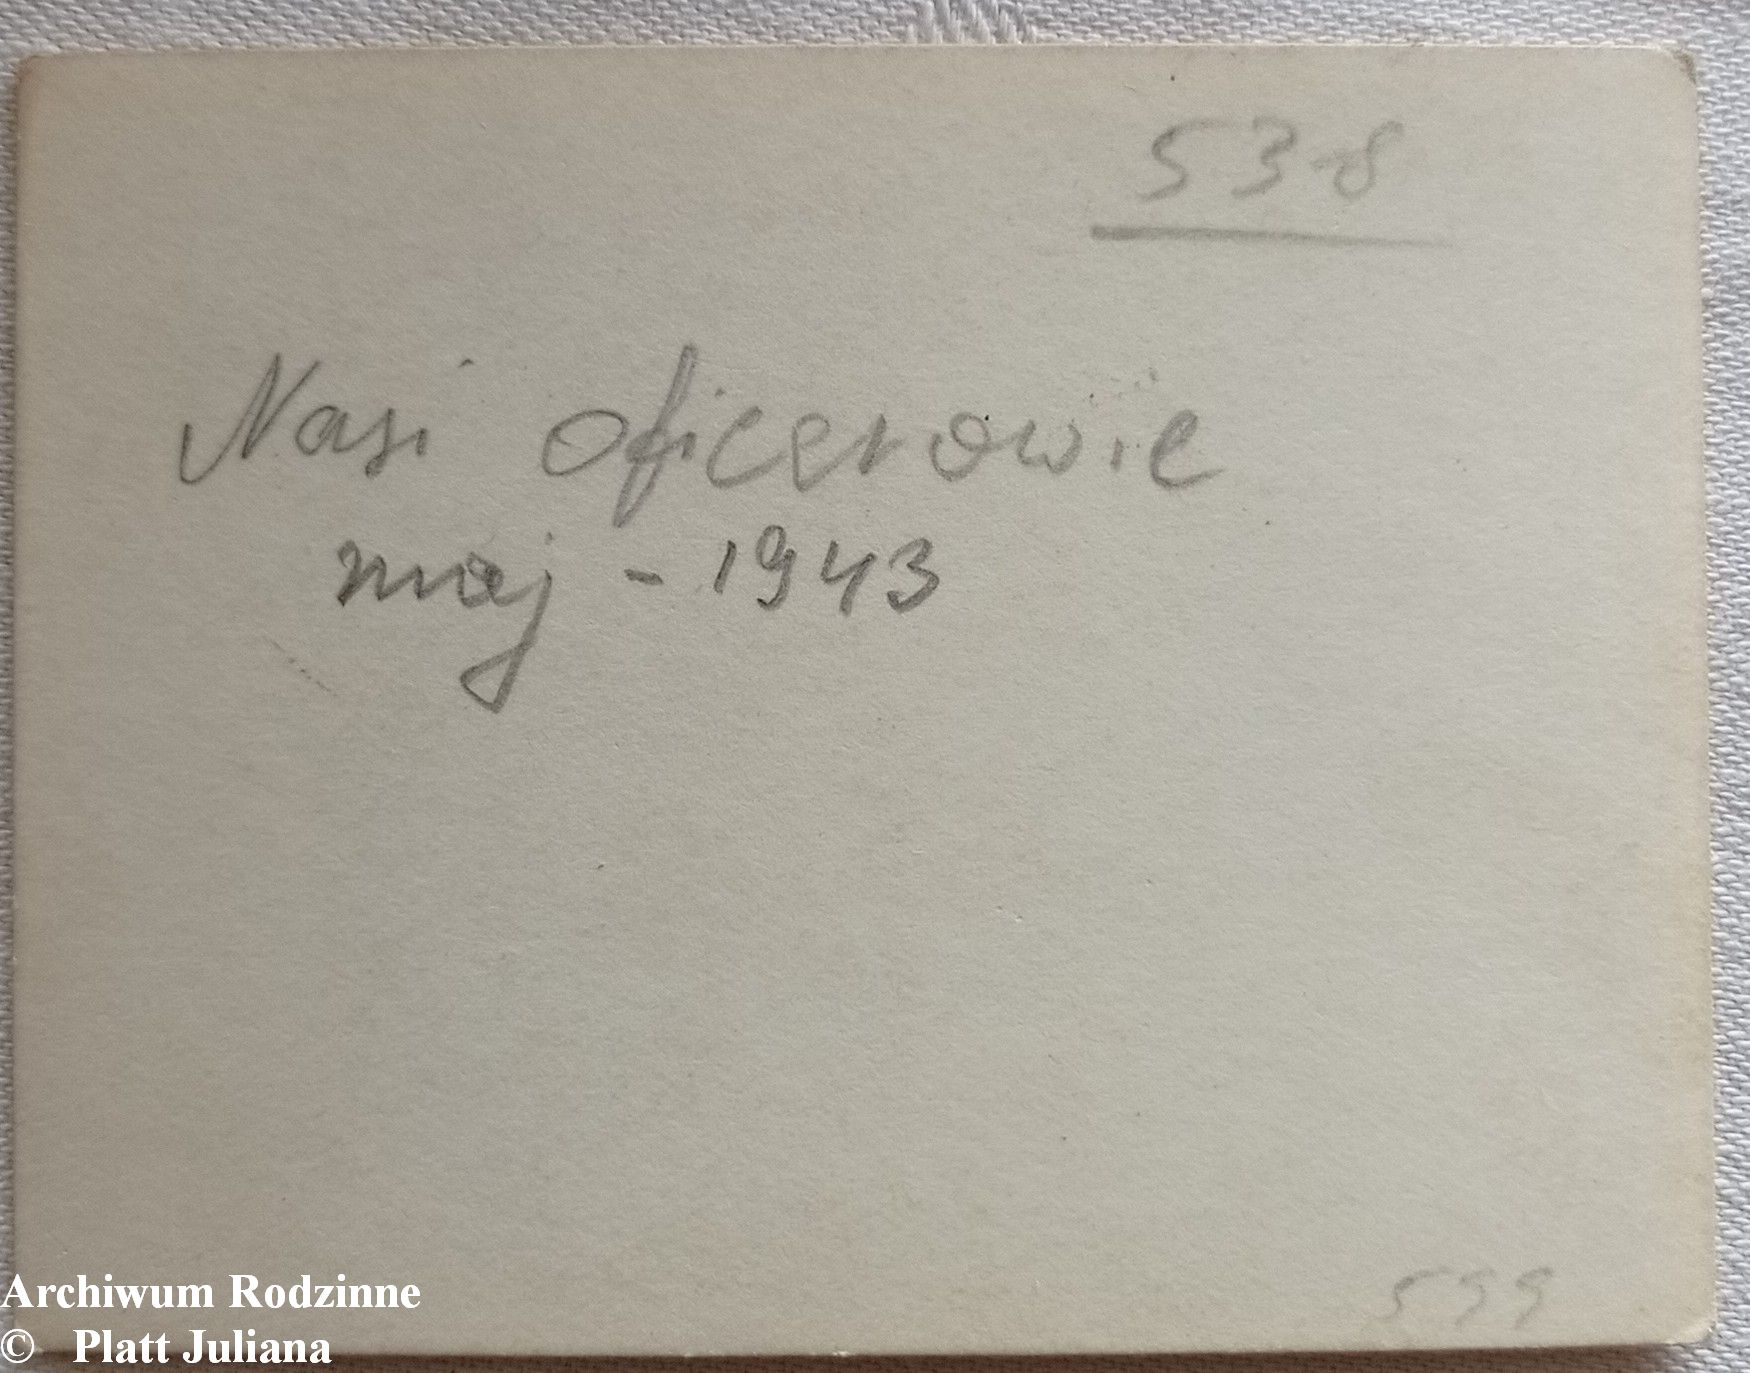 538
Nasi oficerowie
maj - 1943
599
Archiwum Rodzinne
© Platt Juliana